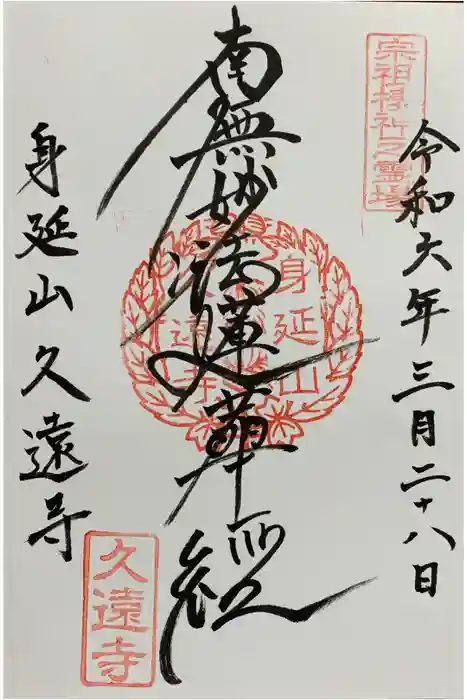 宗祖棲神之霊場
令和六年三月二十八日
南無妙法蓮華経
身延山
久遠寺
身延山久遠寺
久遠寺